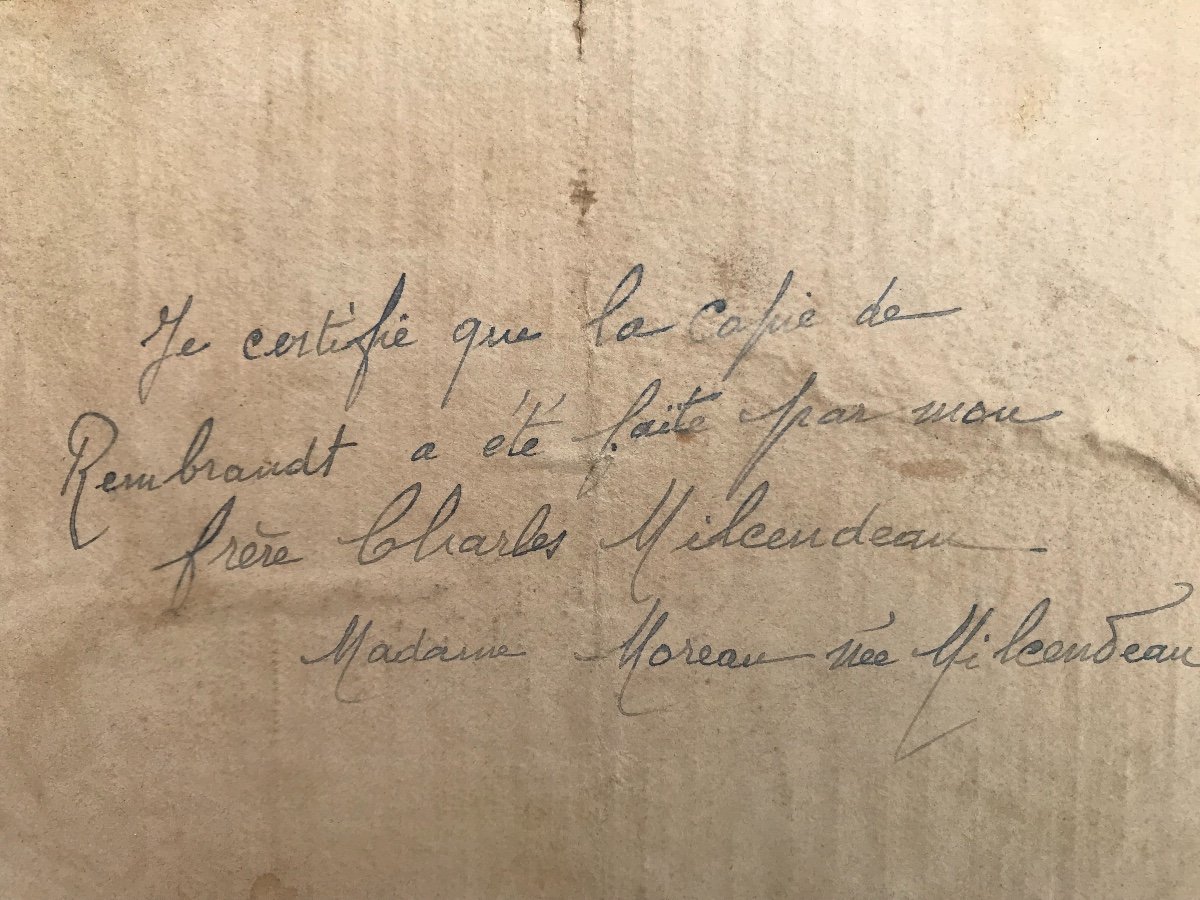 Je certifie que la copie de
Rembrandt a été faite par mon
frère Charles Milcendeau
Madame Moreau née Milcendeau